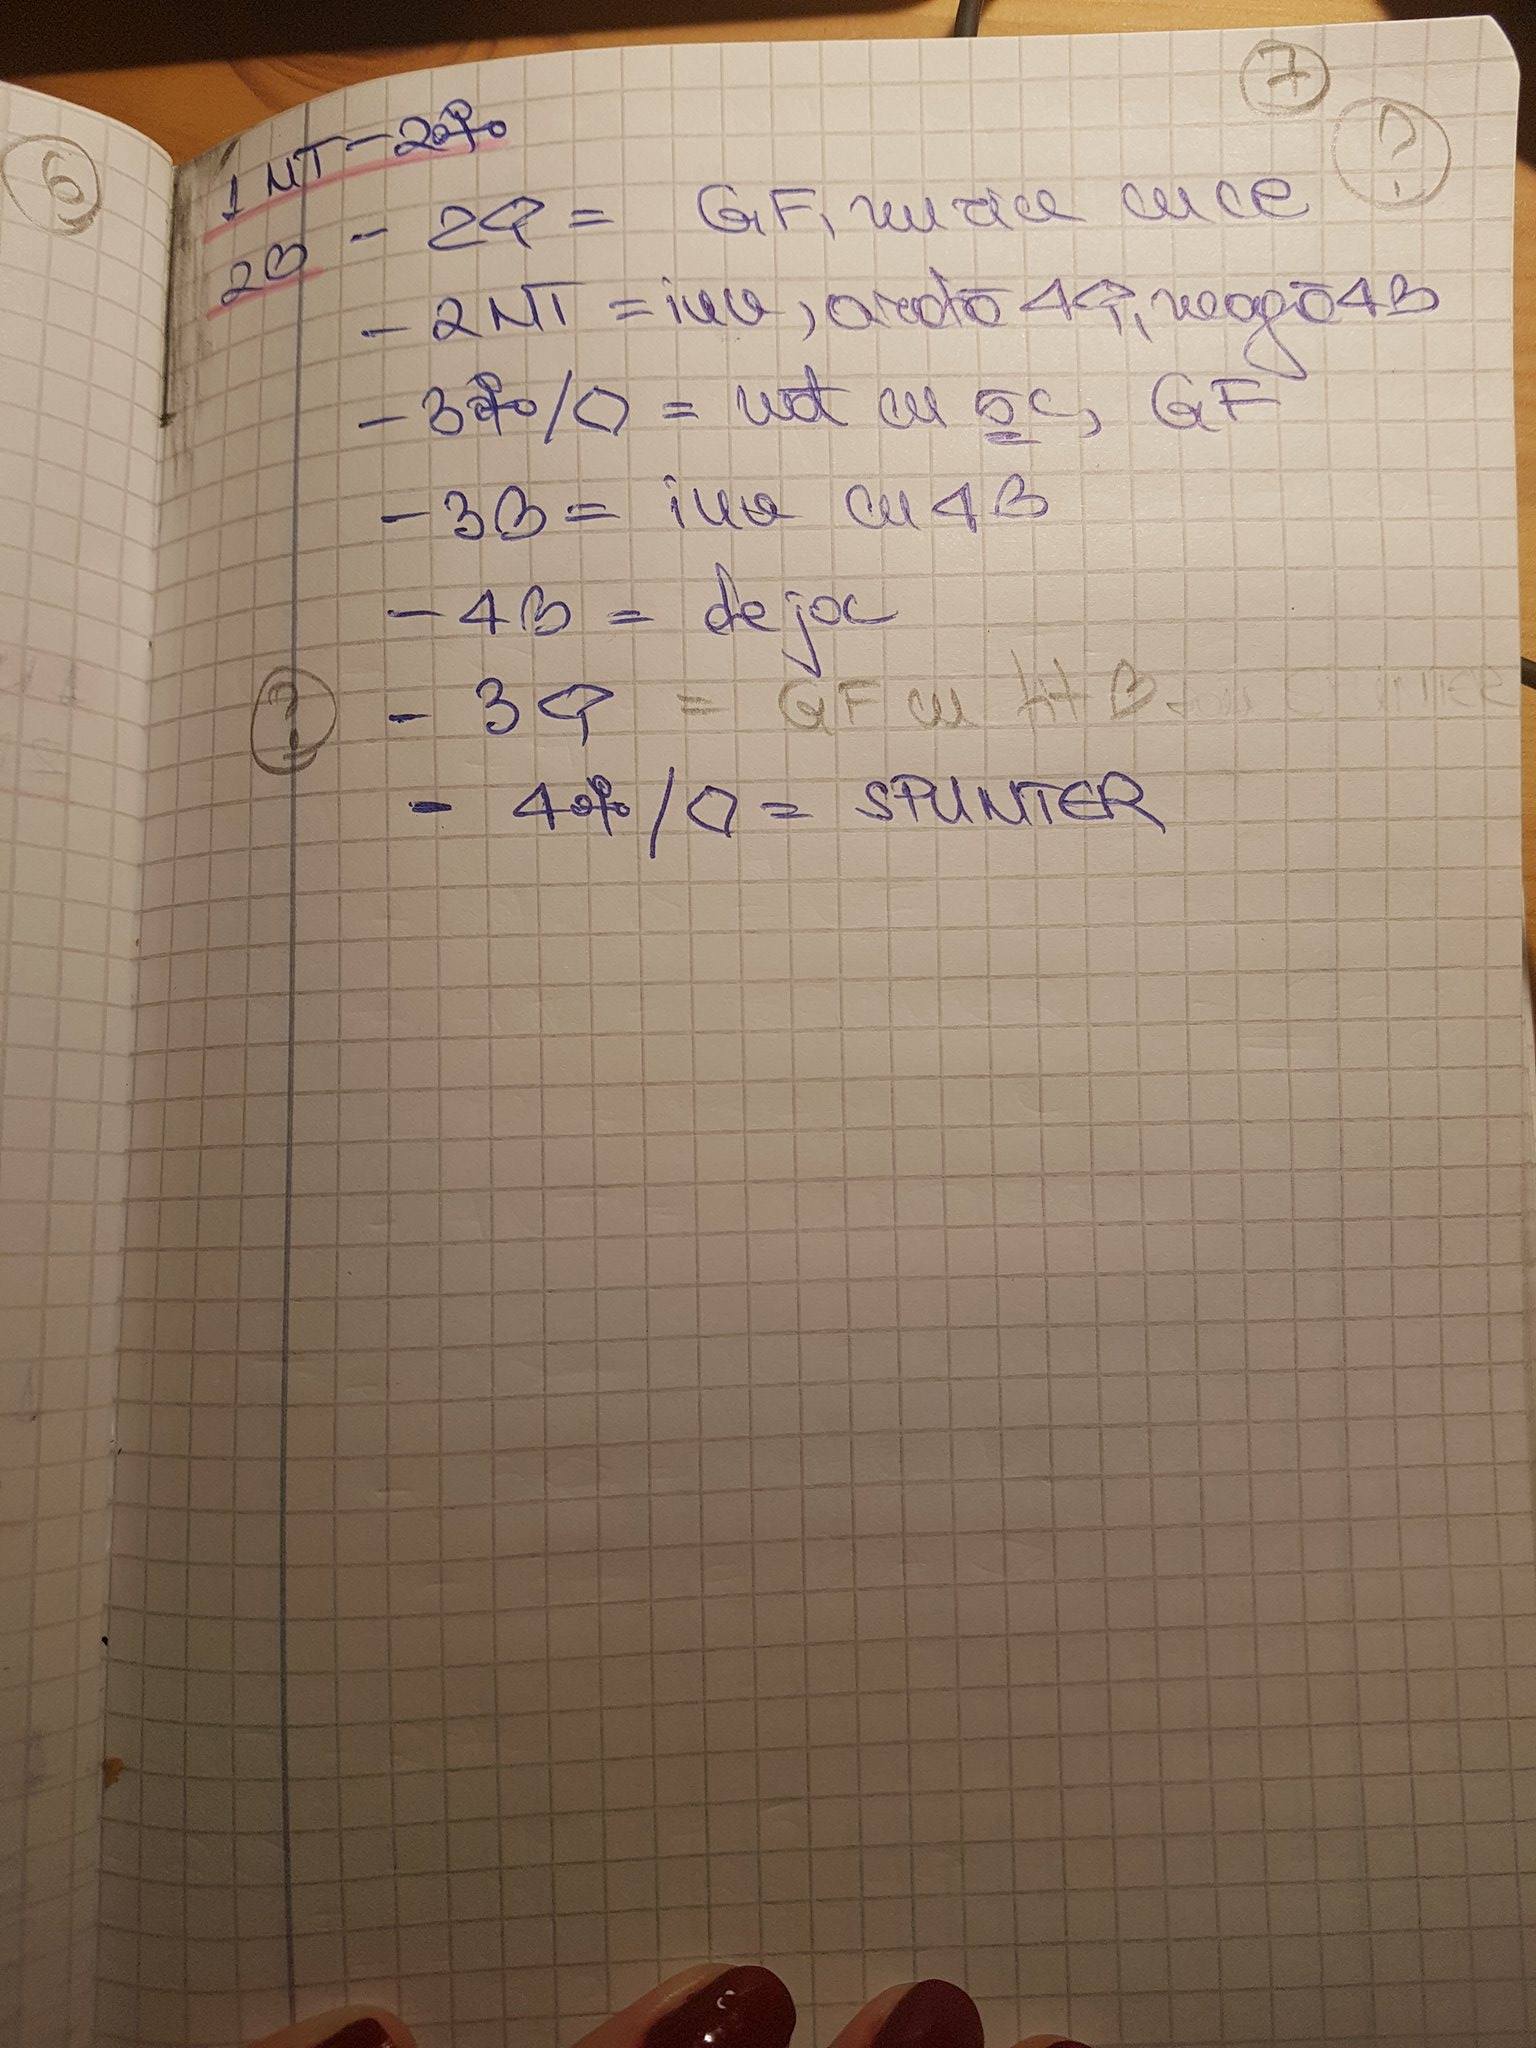 6
7
?
1NT-2♣
2♥ - 2♠ = GF,
- 2NT = inv, arată 4♠, neagă 4♥
- 3♣/♦ = nat cu 5c, GF
- 3♥ = inv cu 4♥
- 4♥ = de joc
? - 3♠ = GF cu
- 4♣/♦ = SPLINTER